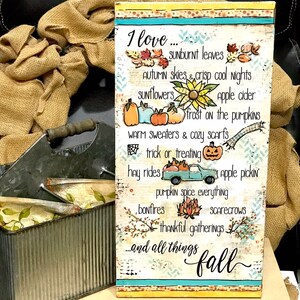 I love ...
sunburnt leaves
autumn skies & crisp cool nights
sunflowers apple cider
frost on the pumpkins
warm sweaters & cozy scarfs
trick or treating
hay rides apple pickin'
pumpkin spice everything
bonfires scarecrows
thankful gatherings
...and all things
fall